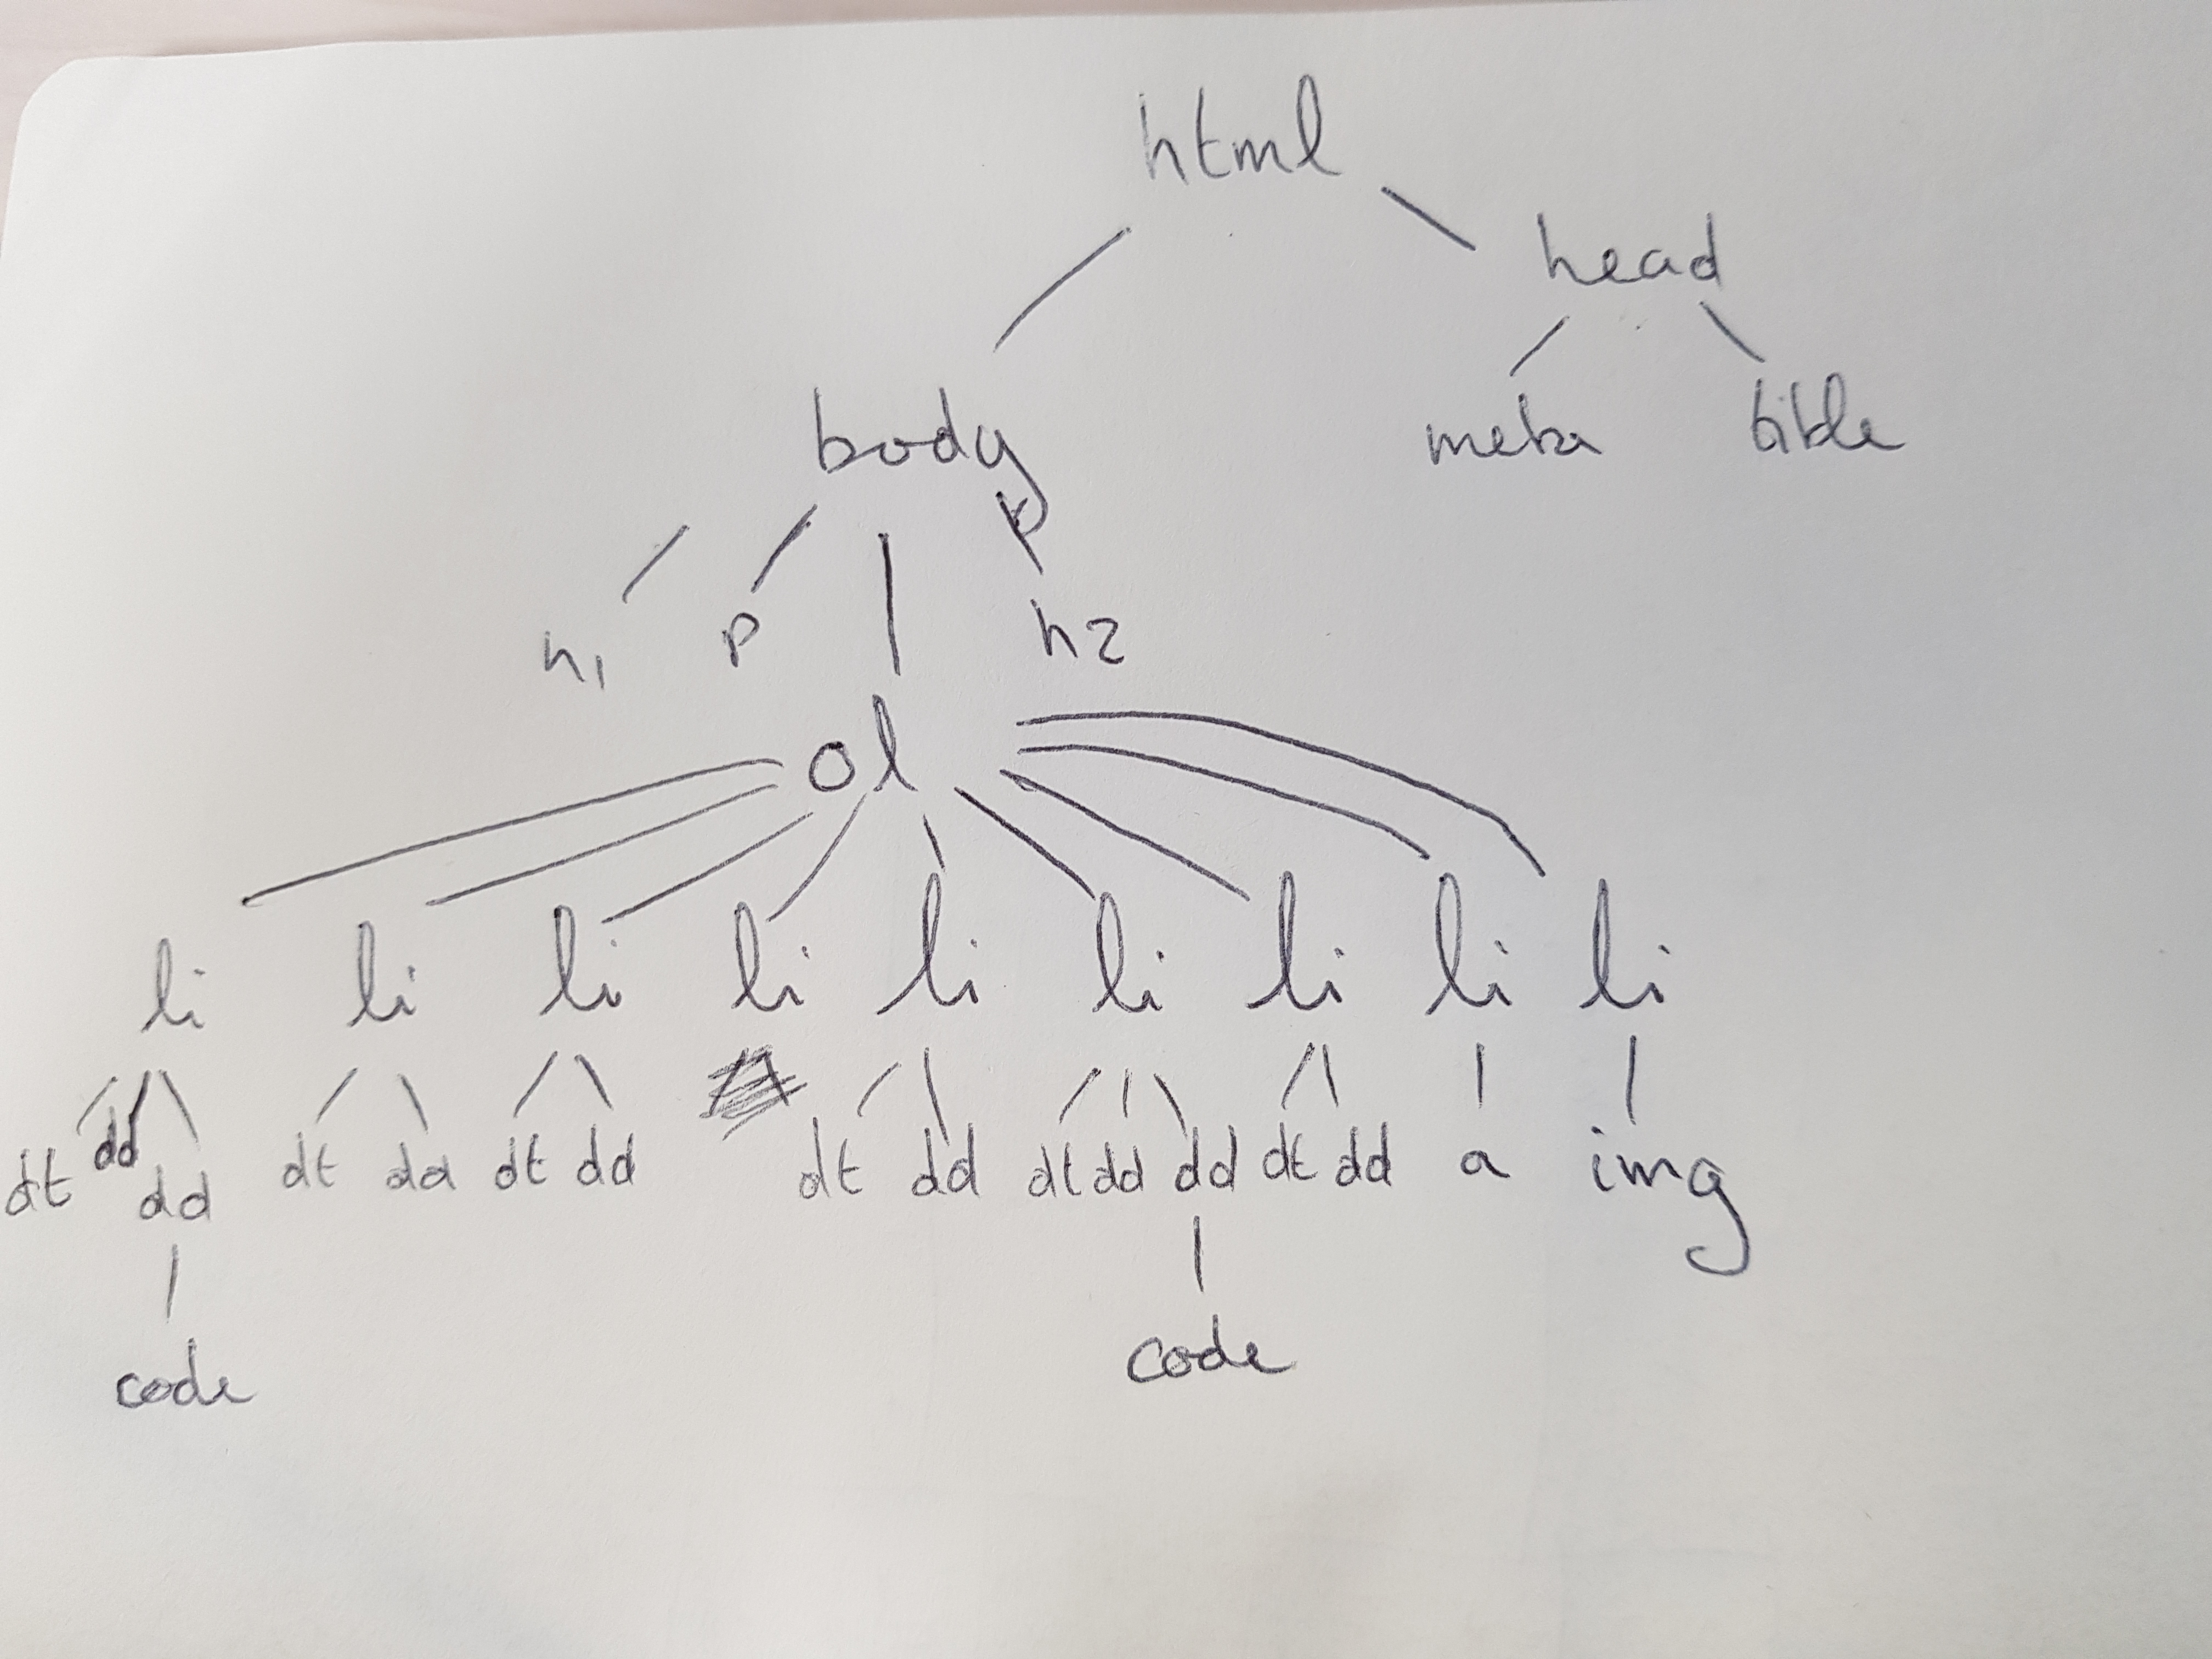 html
head
body meta title
p
h1 p h2
ol
li li li li li li li li li
dt dd dd dt dd dt dd dt dd dt dd dd dt dd a img
code code